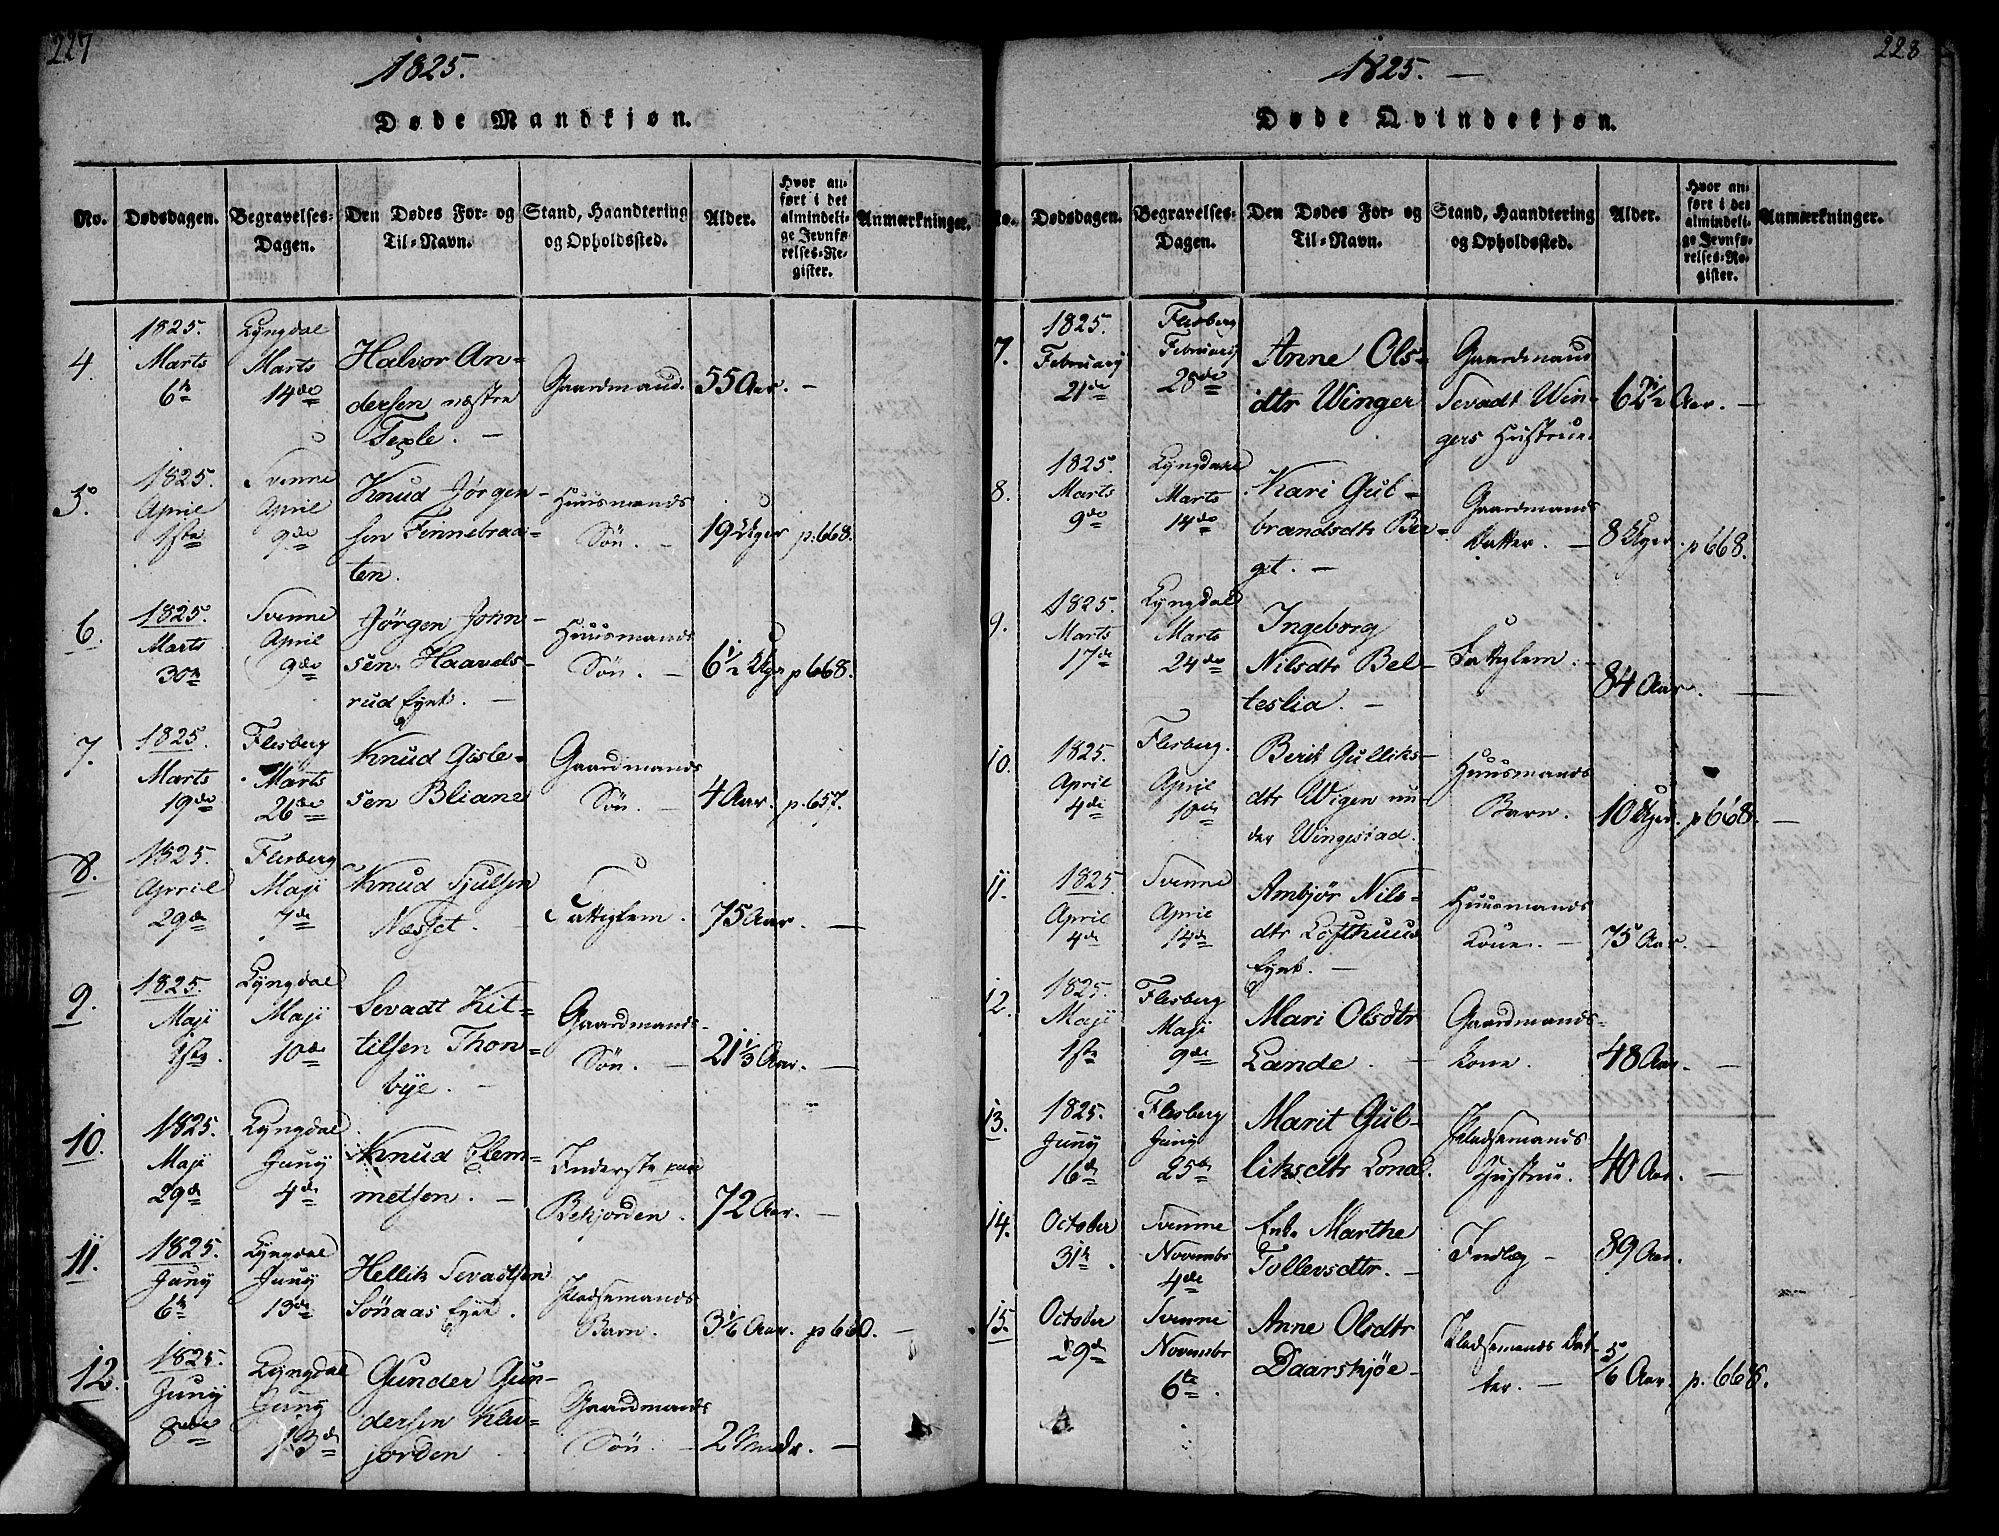 227
1825.
Døde Mandkjøn.
No. Dødsdagen. Begravelses-Dagen. Den Dødes For- og Til-Navn. Stand, Haandtering og Opholdssted. Alder. Hvor anført i det almindelige Jevnførelses-Register. Anmærkninger.
4. 1825. Marts 6te Lyngdal Marts 14de Halvor Andersen næstre Texle. Gaardmand. 55 Aar. —
5. 1825. April 1ste Svenne April 9de Knud Jørgensen Finnebraaten. Huusmands Søn. — 19 Uger p. 668.
6. 1825. Marts 30te Svenne April 9de Jørgen Johnsen Haavelsrud Eynt. — Huusmands Søn. — 6 1/2 Uger p 668.
7. 1825. Marts 19de Flesberg Marts 26de Knud Gislesen Bliane Gaardmands Søn. — 4 Aar. p. 657.
8. 1825. April 29de Flesberg Maji 7de Knud Sjulsen Næsset. — Fattiglem. 75 Aar. —
9. 1825. Maji 1ste Lyngdal Maji 10de Sevadt Kittilsen Thonbye. — Gaardmands-Søn. — 21 1/3 Aar. —
10. 1825. Maji 29de Lyngdal Juny 4de Knud Clemmetsen. — Inderste paa Bekjorden. 72 Aar. —
11. 1825. Juny 6te Lyngdal Juny 13de Hellik Sevadtsen Sønaas Eynt. Pladsemands Barn. 3 1/6 Aar. p 660. —
12. 1825. Juny 8de Lyngdal Juny 13de Gunder Gundersen Kluvjorden Gaardmands Søn. — 2 —
228
1825. —
Døde Qvindekjøn.
No. Dødsdagen. Begravelses-Dagen. Den Dødes For- og Til-Navn. Stand, Haandtering og Opholdssted. Alder. Hvor anført i det almindelige Jevnførelses-Register. Anmærkninger.
7. 1825. February 21de Flesberg February 28de Anne Olsdtr Winger Gaardmand Sevadt Wingers Hustrue. 62 1/2 Aar. —
8. 1825. Marts 9de Lyngdahl Marts 14de Kari Gulbrandsdtr Berget. — Gaardmands Datter. — 8 Uger. p 668.
9. 1825. Marts 17de Lyngdal Marts 24de Ingeborg Nilsdtr Belteslia. — Fattiglem. — 84 Aar. —
10. 1825. April 4de Flesberg. April 10de Berit Gulliksdtr Wigen under Wingestad. Huusmands Barn. 10 Uger. p 668. —
11. 1825. April 4de Svenne April 14de Ambjør Nilsdtr Lofthuus Eynt. — Huusmands Kone. — 75 Aar. —
12. 1825. Maji 1ste Flesberg Maji 9de Mari Olsdtr Lande. — Gaardmands-kone. 48 Aar. —
13. 1825. Juny 16de Flesberg Juny 25de Marit Gulliksdtr Pladsemands Hustrue. 40 Aar. —
14. October 31te. Svenne Novembr 4de Enk. Marthe Tollevsdtr. — Indlæg — 89 Aar.
15. October 29de Svenne Novembr 6te. Anne Olsdtr Daarskjøe — Pladsemands Datter. — 5/6 Aar. p. 668.